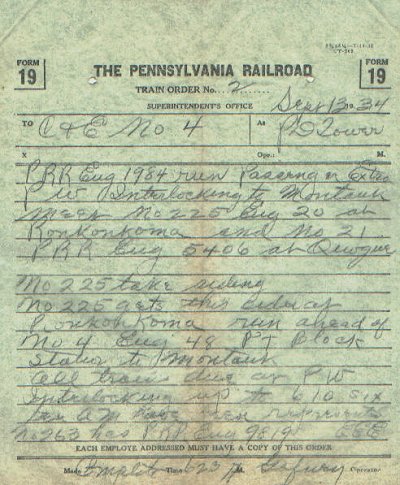 FORM 19
THE PENNSYLVANIA RAILROAD
FORM 19
TRAIN ORDER No. 2
SUPERINTENDENT'S OFFICE
Sept 13 34
TO C&E No 4 At PD Tower
X Opr.: M.
PRR Eng 1984 run Passenger Extra
PW Interlocking to Montauk
Meet No 225 Eng 20 at
Ronkonkoma and No 21
PRR Eng 5406 at Quogue
No 225 take siding
No 225 gets this order at
Ronkonkoma run ahead of
No 4 Eng 48 PT Block
Station to Montauk
All trains due at PW
Interlocking up to 6 10 six
ten AM have
No 263 has PRR Eng EEE
EACH EMPLOYE ADDRESSED MUST HAVE A COPY OF THIS ORDER
Made Complete Time 623 A Operator